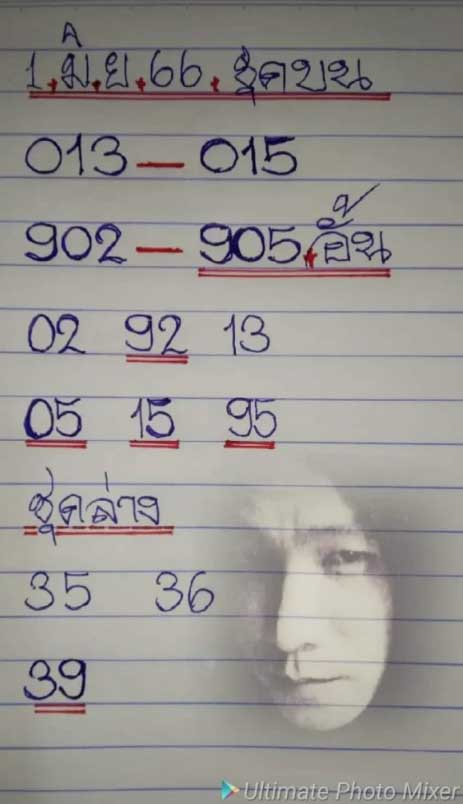 1.มิ.ย.66.ชุดบน
013 — 015
902 — 905.อั้น
02 92 13
05 15 95
ชุดล่าง
35 36
39
Ultimate Photo Mixer